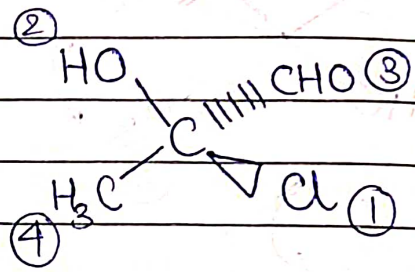 ②
HO
CHO ③
C
H₃C
Cl ①
④